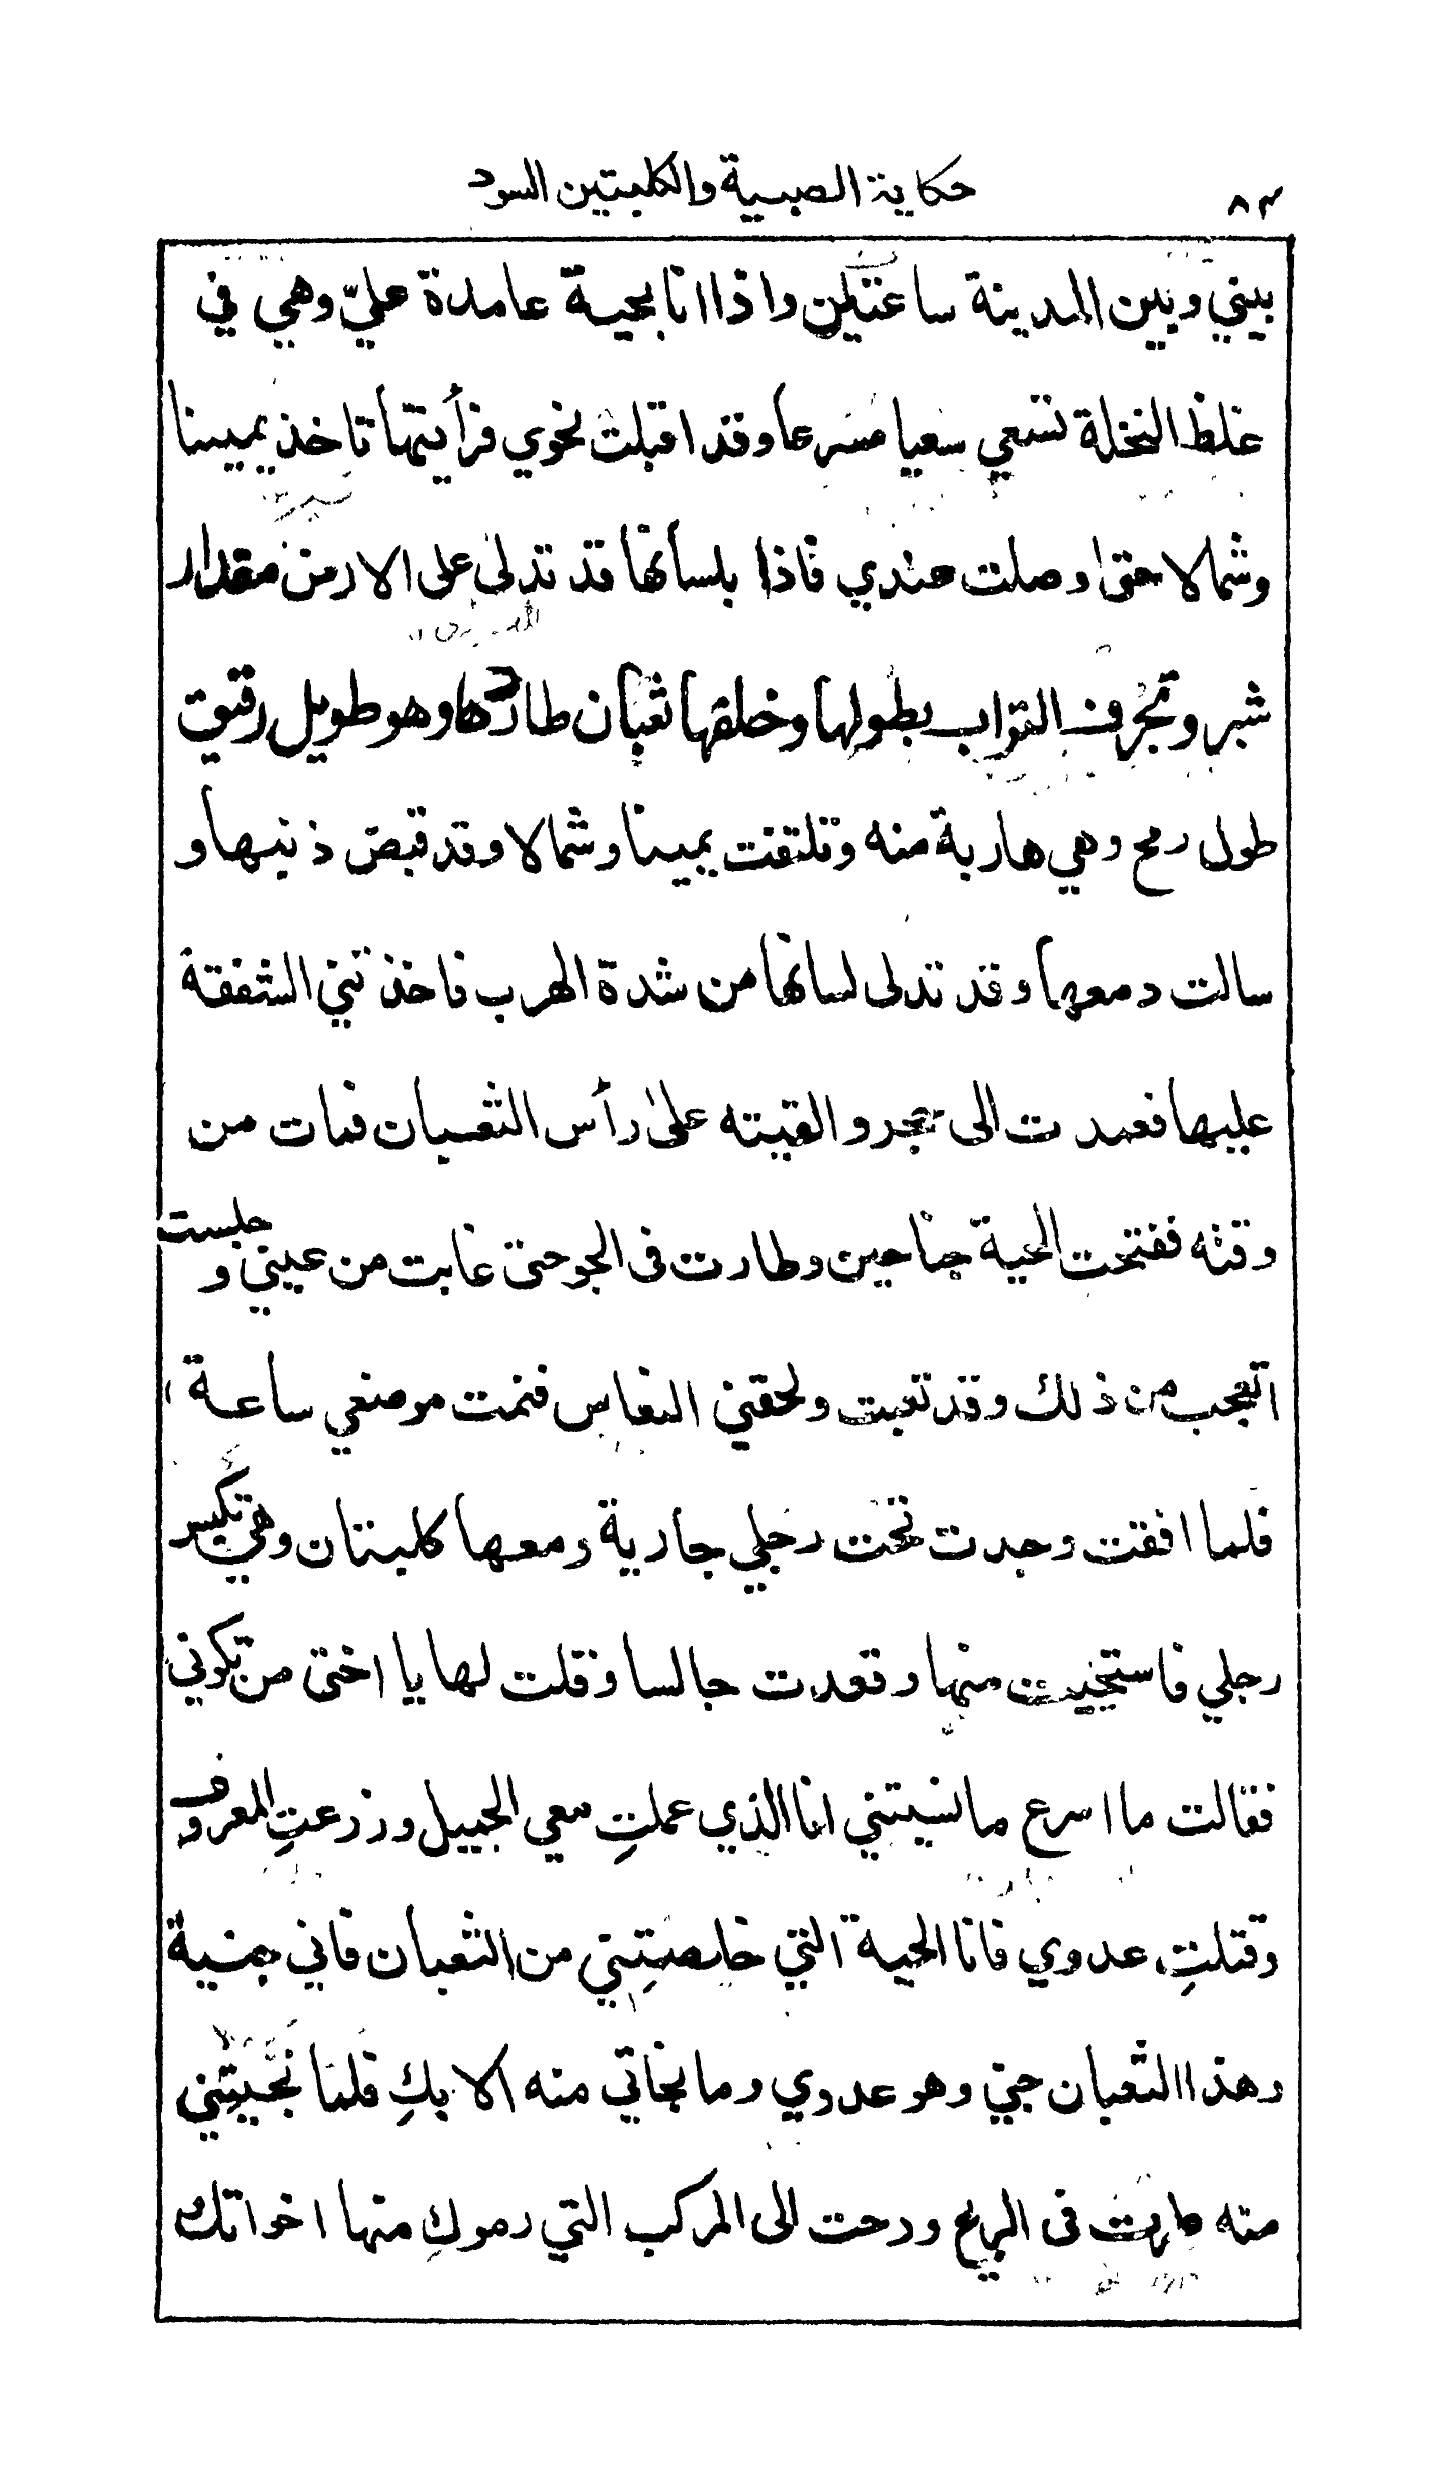 حكاية الصبية والكلبتين السود
٨٣
بيني وبين المدينة ساعتين واذا انا بحية عامدة عليّ وهي في
غلظ النخلة تسعي سعيا مسرعا وقد اقبلت نحوي فرأيتها تاخذ يمينا
وشمالا حتى وصلت عندي فاذا بلسانها قد تدلى على الارض مقدار
شبر وتجرف التراب بطولها وخلفها ثعبان طاردها وهو طويل رقيق
طول رمح وهي هاربة منه وتلتفت يمينا وشمالا وقد قبض ذنبها و
سالت دمعها وقد تدلى لسانها من شدة الهرب فاخذتني الشفقة
عليها فعمدت الى حجر و القيته على رأس الثعبان فمات من
وقته ففتحت الحية جناحين وطارت فى الجو حتى غابت من عيني و جلست
اتعجب من ذلك وقد تعبت ولحقني النعاس فنمت موضعي ساعة
فلما افقت وجدت تحت رجلي جارية ومعها كلبتان وهي تكبس
رجلي فاستحيت منها وقعدت جالسا وقلت لها يا اختى من تكوني
فقالت ما اسرع ما نسيتني انا الذي عملتِ معي الجميل وزرعتِ المعروف
وقتلتِ عدوي فانا الحية التي خلصتِني من الثعبان فاني جنية
وهذا الثعبان جني وهو عدوي وما نجاتي منه الا بكِ فلما نجيتِني
منه طرت فى الريح ورحت الى المركب التي رموكِ منها اخواتك